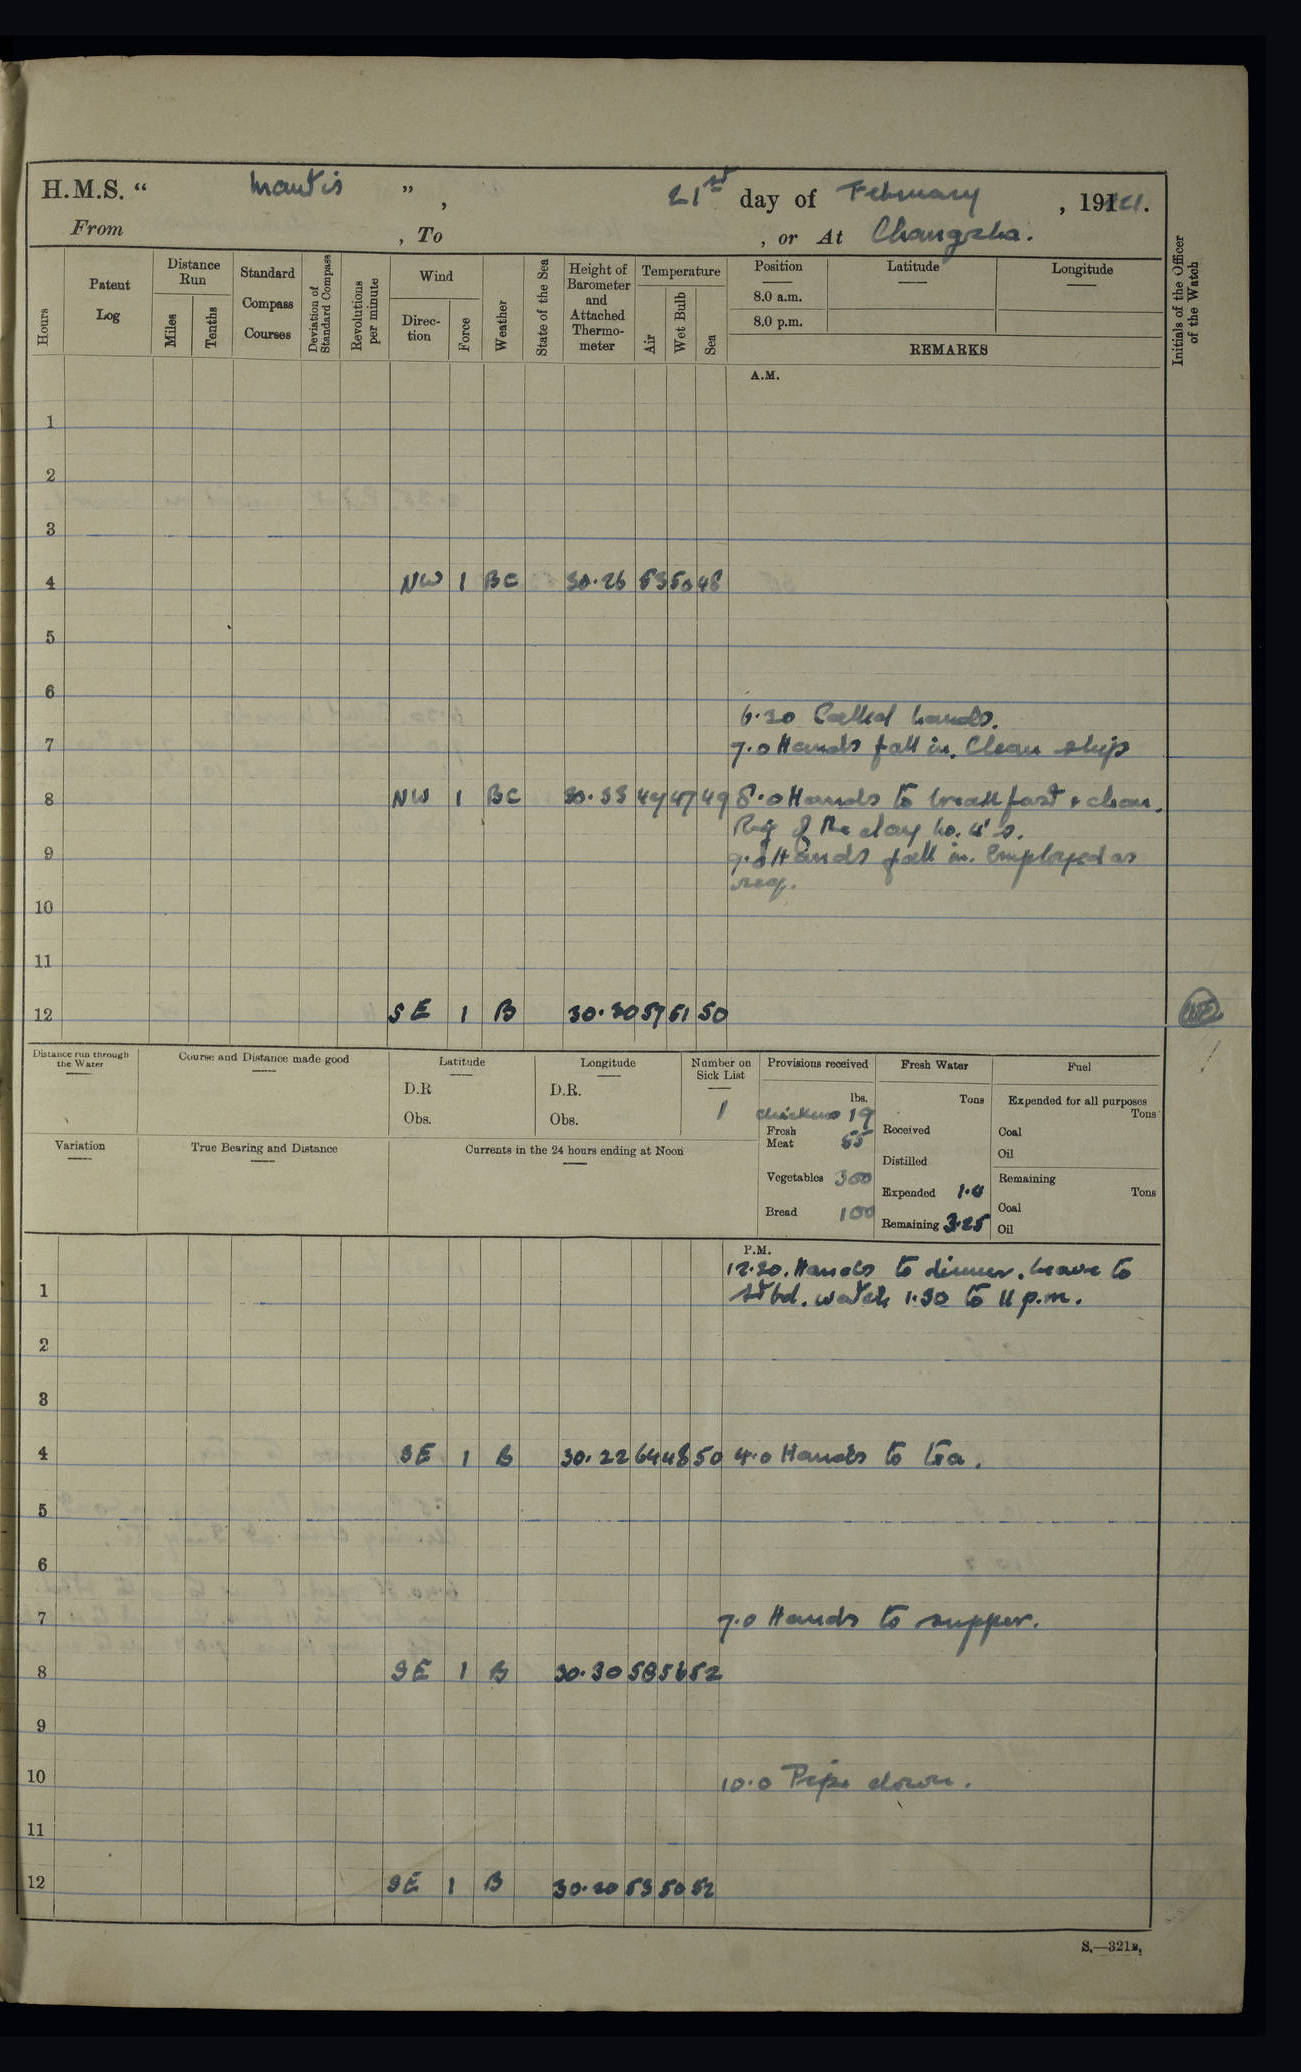 H.M.S. “ Mantis ” , 21st day of February , 1921.
From , To , or At Changsha.
Hours
Patent Log
Distance Run
Miles
Tenths
Standard Compass Courses
Deviation of Standard Compass
Revolutions per minute
Wind
Direc-tion
Force
Weather
State of the Sea
Height of Barometer and Attached Thermo-meter
Temperature
Air
Wet Bulb
Sea
Position
Latitude
Longitude
8.0 a.m.
8.0 p.m.
REMARKS
Initials of the Officer of the Watch
A.M.
1
2
3
4 NW 1 BC 30.26 53 50 48
5
6
6.30 Called hands.
7 7.0 Hands fall in. Clean ship
8 NW 1 BC 30.33 49 47 49 8.0 Hands to breakfast & clean.
Rig of the day No. 4's.
9 Hands fall in. Employed as
req.
10
11
12 SE 1 B 30.30 57 51 50
Distance run through the Water
Course and Distance made good
Latitude
D.R
Obs.
Longitude
D.R.
Obs.
Number on Sick List
1
Provisions received
lbs.
Chickens 19
Fresh Meat 55
Vegetables 300
Bread 100
Fresh Water
Tons
Received
Distilled
Expended 1.0
Remaining 3.25
Fuel
Expended for all purposes
Tons
Coal
Oil
Remaining
Tons
Coal
Oil
Variation
True Bearing and Distance
Currents in the 24 hours ending at Noon
P.M.
12.30. Hands to dinner. Leave to
1 Stbd. watch 1.30 to 11 p.m.
2
3
4 SE 1 B 30.22 64 48 50 4.0 Hands to tea.
5
6
7 7.0 Hands to supper.
8 SE 1 B 30.30 58 56 52
9
10 10.0 Pipe down.
11
12 SE 1 B 30.30 53 50 52
S.—321B.